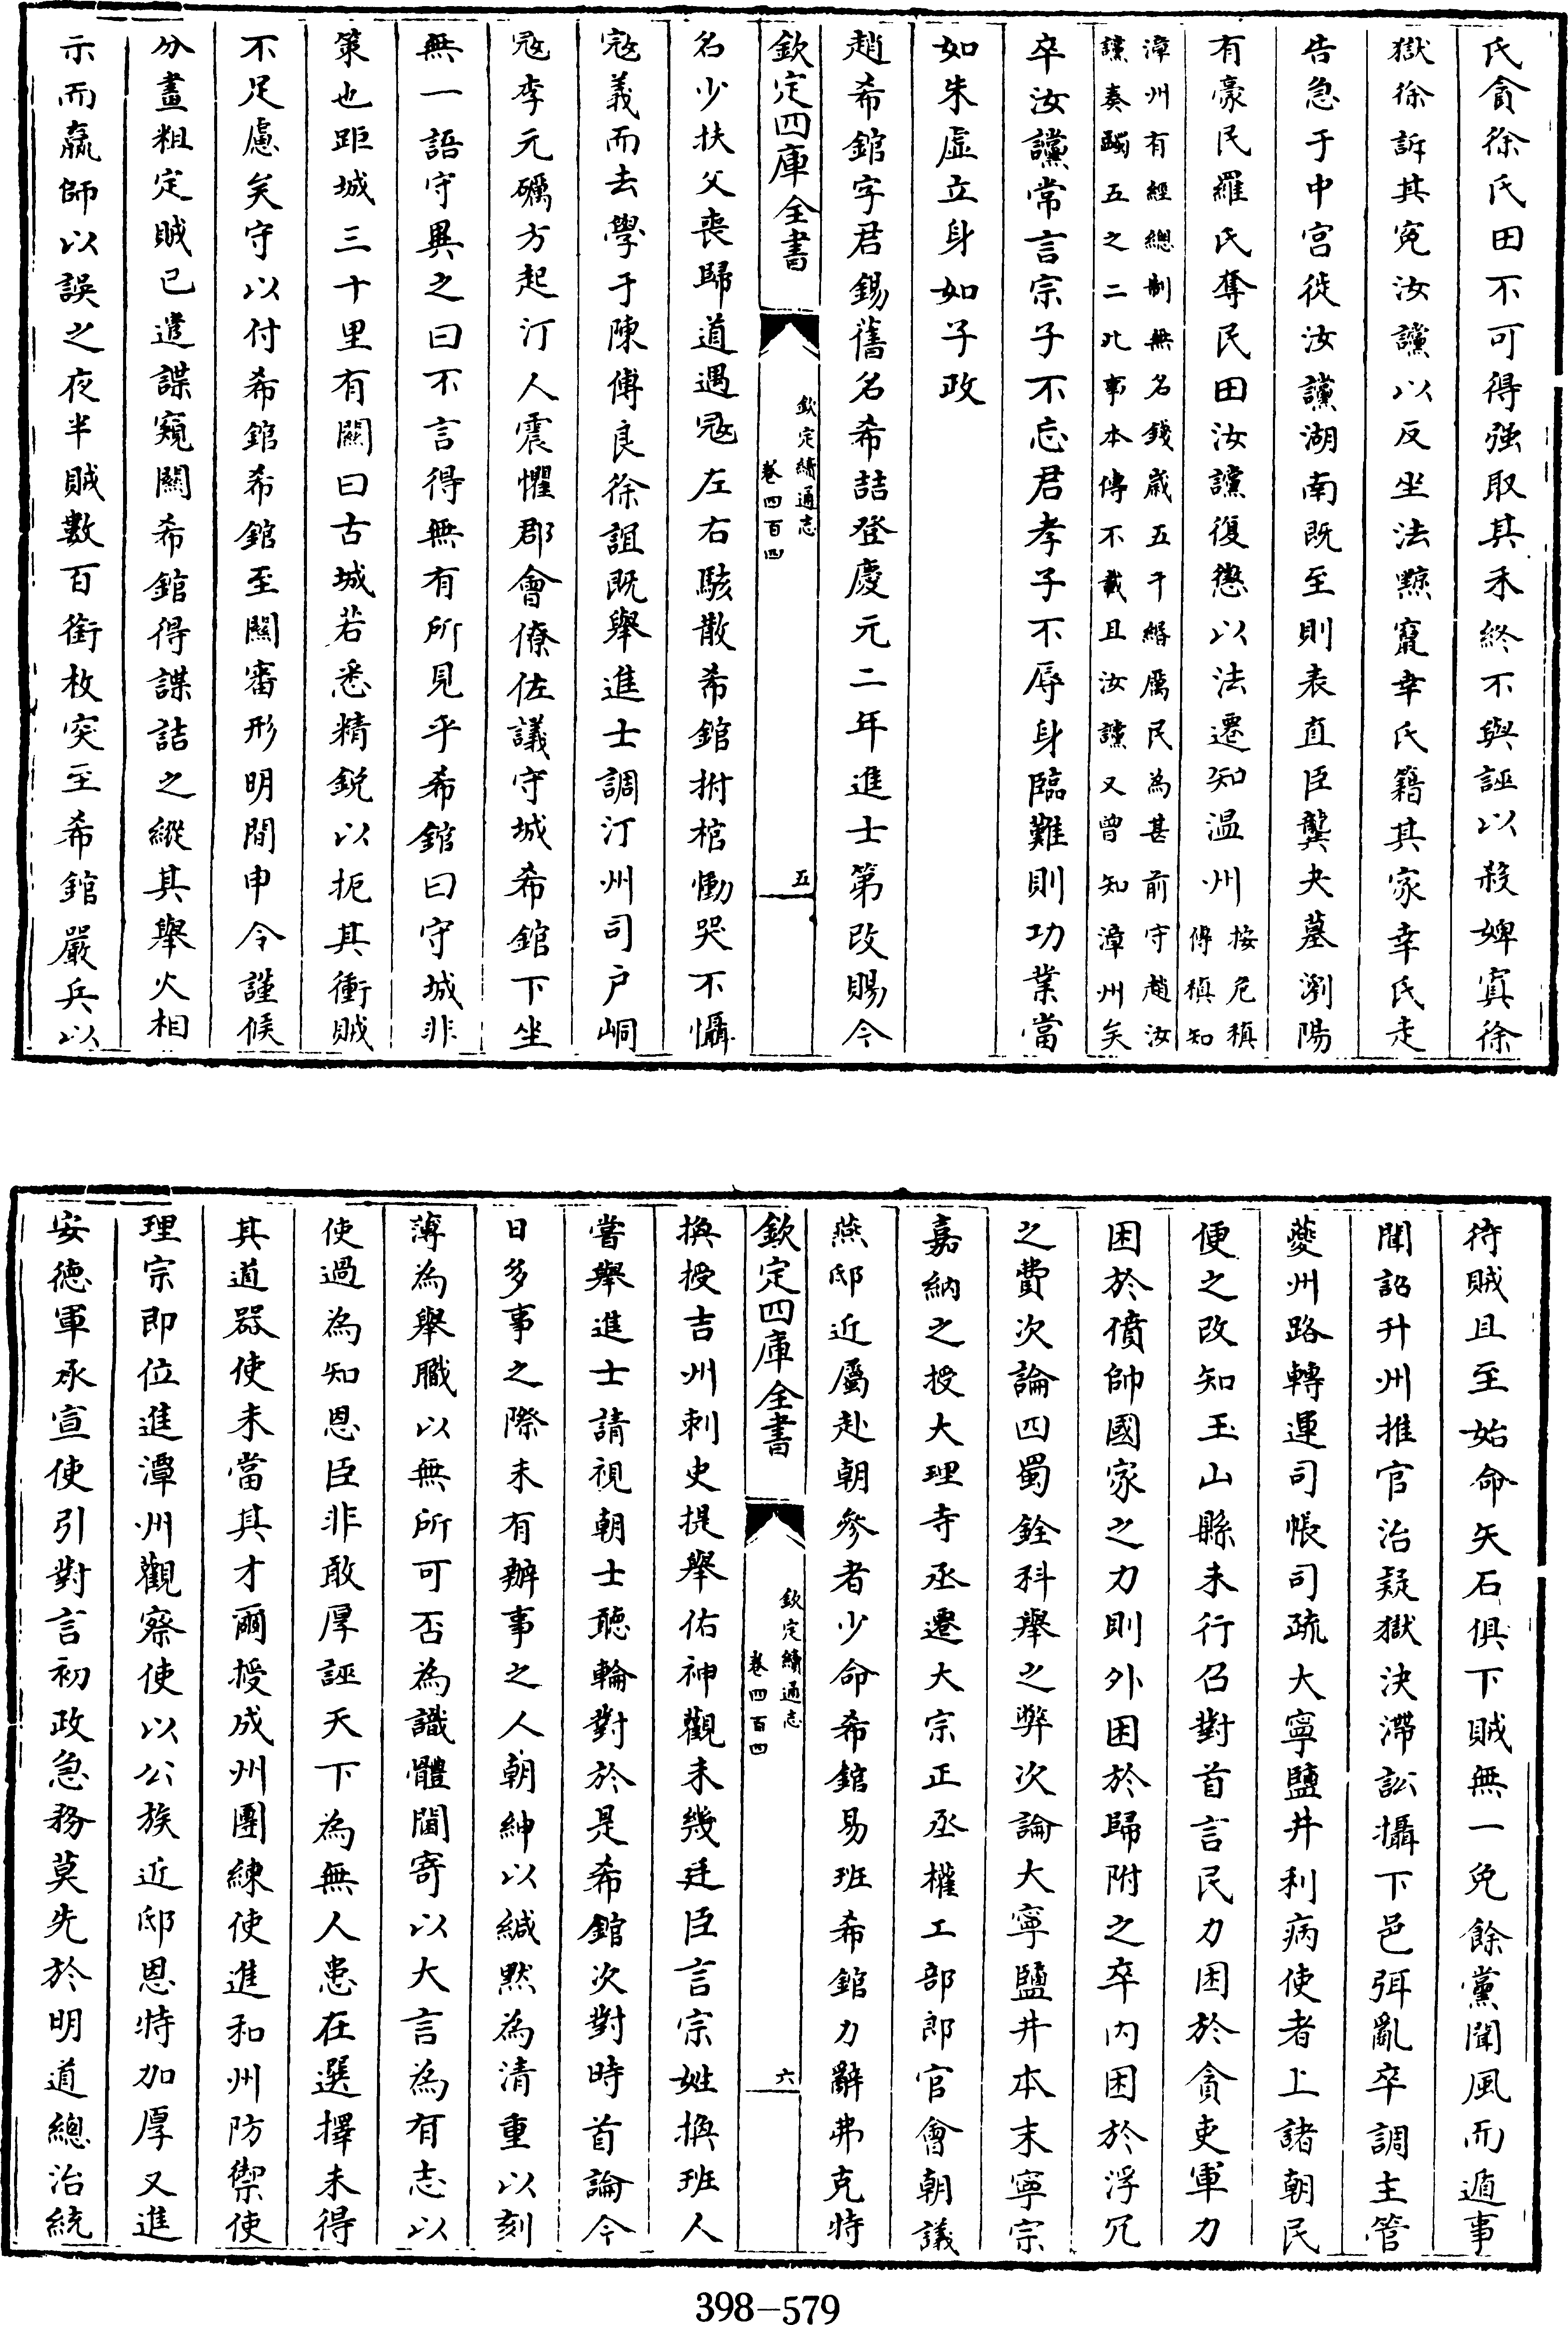 氏貪徐氏田不可得强取其禾終不與誣以殺婢寘徐
獄徐訴其寃汝讜以反坐法黥竄幸氏籍其家幸氏走
告急于中宫徙汝讜湖南既至則表直臣龔夬墓瀏陽
有豪民羅氏奪民田汝讜復懲以法遷知温州按危稹
傳稹知
漳州有經總制無名錢歳五千緡厲民為甚前守趙汝
讜奏蠲五之二此事本傳不載且汝讜又曾知漳州矣
卒汝讜常言宗子不忘君孝子不辱身臨難則功業當
如朱虚立身如子政
趙希錧字君錫舊名希喆登慶元二年進士第改賜今
欽定四庫全書
欽定續通志
卷四百四
五
名少扶父喪歸道遇冦左右駭散希錧拊棺慟哭不懾
冦義而去學于陳傅良徐誼既舉進士調汀州司户峒
冦李元礪方起汀人震懼郡會僚佐議守城希錧下坐
無一語守異之曰不言得無有所見乎希錧曰守城非
策也距城三十里有關曰古城若悉精鋭以扼其衝賊
不足慮矣守以付希錧希錧至關審形明間申令謹候
分畫粗定賊已遣諜窺關希錧得諜詰之縱其舉火相
示而羸師以誤之夜半賊數百銜枚突至希錧嚴兵以
待賊且至始命矢石俱下賊無一免餘黨聞風而遁事
聞詔升州推官治疑獄決滯訟攝下邑弭亂卒調主管
夔州路轉運司帳司疏大寧鹽井利病使者上諸朝民
便之改知玉山縣未行召對首言民力困於貪吏軍力
困於債帥國家之力則外困於歸附之卒内困於浮冗
之費次論四蜀銓科舉之弊次論大寧鹽井本末寧宗
嘉納之授大理寺丞遷大宗正丞權工部郎官會朝議
燕邸近屬赴朝參者少命希錧易班希錧力辭弗克特
欽定四庫全書
欽定續通志
卷四百四
六
換授吉州刺史提舉佑神觀未幾廷臣言宗姓換班人
嘗舉進士請視朝士聽輪對於是希錧次對時首論今
日多事之際未有辦事之人朝紳以緘默為清重以刻
薄為舉職以無所可否為識體閫寄以大言為有志以
使過為知恩臣非敢厚誣天下為無人患在選擇未得
其道器使未當其才爾授成州團練使進和州防禦使
理宗即位進潭州觀察使以公族近邸恩特加厚又進
安德軍承宣使引對言初政急務莫先於明道總治統
398-579